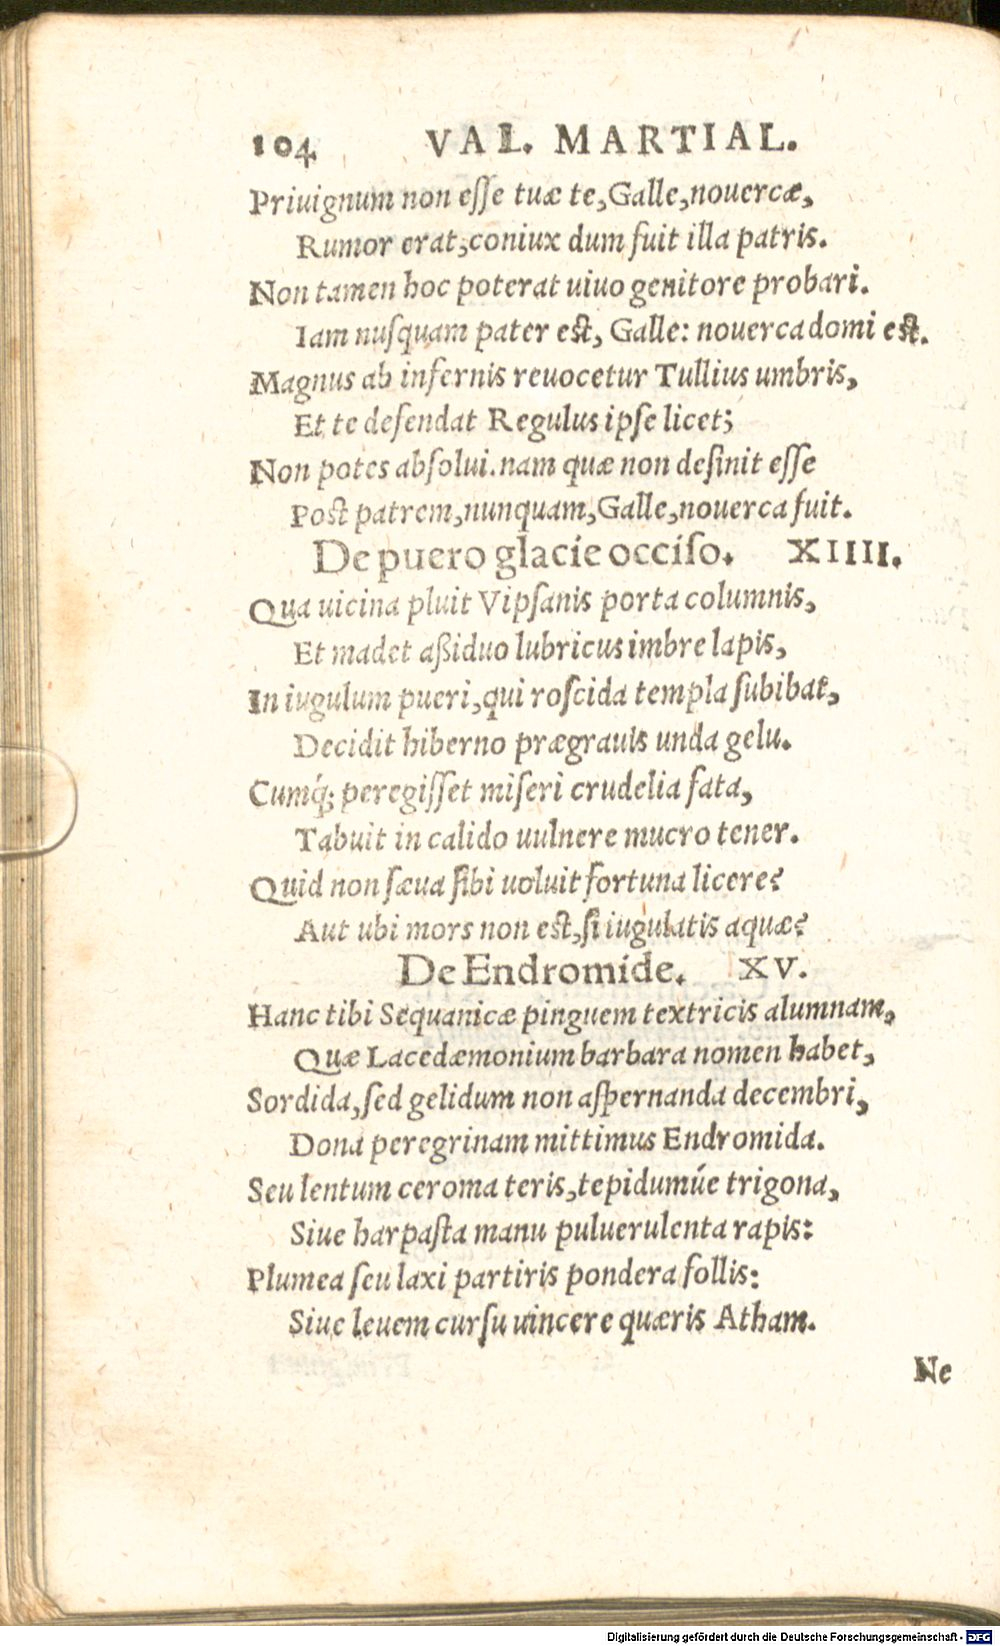 104 VAL. MARTIAL.
Priuignum non esse tuæ te, Galle, nouercæ,
Rumor erat, coniux dum fuit illa patris.
Non tamen hoc poterat uiuo genitore probari.
Iam nusquam pater est, Galle: nouerca domi est.
Magnus ab infernis reuocetur Tullius umbris,
Et te defendat Regulus ipse licet;
Non potes absolui. nam quæ non desinit esse
Post patrem, nunquam, Galle, nouerca fuit.
De puero glacie occiso. XIIII.
Qua uicina pluit Vipsanis porta columnis,
Et madet aßiduo lubricus imbre lapis,
In iugulum pueri, qui roscida templa subibat,
Decidit hiberno prægrauis unda gelu.
Cumq́; peregisset miseri crudelia fata,
Tabuit in calido uulnere mucro tener.
Quid non sæua sibi uoluit fortuna licere?
Aut ubi mors non est, si iugulatis aquæ?
De Endromide. XV.
Hanc tibi Sequanicæ pinguem textricis alumnam,
Quæ Lacedæmonium barbara nomen habet,
Sordida, sed gelidum non aspernanda decembri,
Dona peregrinam mittimus Endromida.
Seu lentum ceroma teris, tepidumúe trigona,
Siue harpasta manu puluerulenta rapis:
Plumea seu laxi partiris pondera follis:
Siue leuem cursu uincere quæris Atham.
Ne
Digitalisierung gefördert durch die Deutsche Forschungsgemeinschaft - DFG